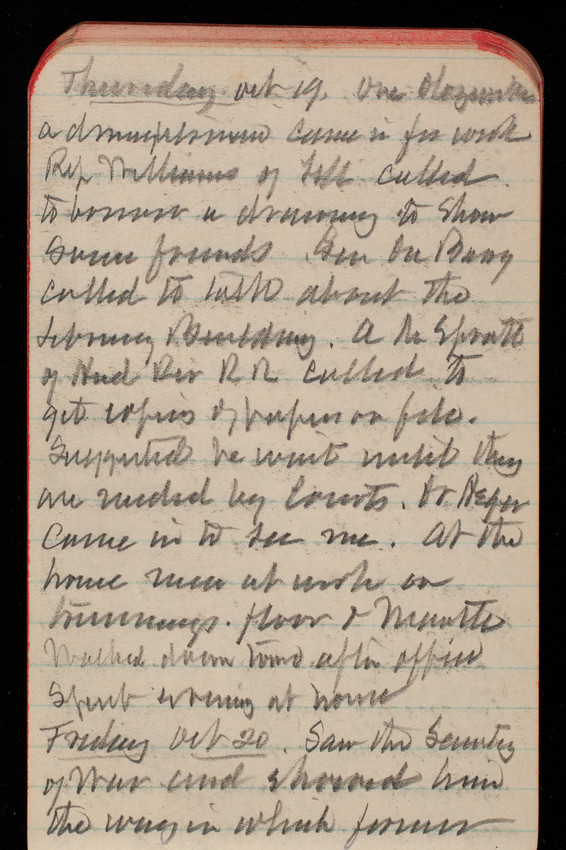 Thursday Oct 19. One
a draughtsman came in for work
Rep Williams of Ill called
to borrow a drawing to show
some friends Gen Du Barry
called to talk about the
Library Building. A Mr Spratt
of Hud Riv R R called to
get copies of papers on file.
Suggested he wait until they
are needed by Courts. Dr
came in to see me. At the
home men at work on
trimmings. floor & Mantle
Walked down town after office
Spent evening at home
Friday Oct 20. Saw the Secretary
of War and showed him
the way in which former